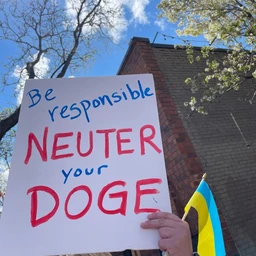 Be
responsible
NEUTER
your
DOGE